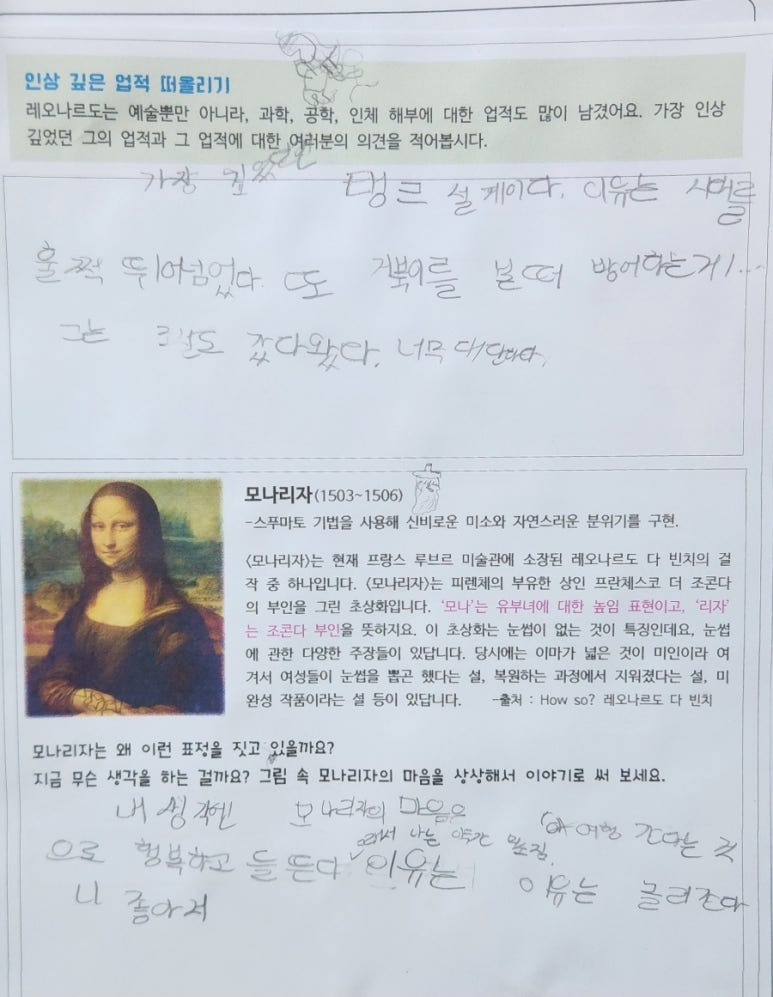 인상 깊은 업적 떠올리기
레오나르도는 예술뿐만 아니라, 과학, 공학, 인체 해부에 대한 업적도 많이 남겼어요. 가장 인상
깊었던 그의 업적과 그 업적에 대한 여러분의 의견을 적어봅시다.
가장 깊었던 탱크 설계이다. 이유는 시대를
훌쩍 뛰어넘었다. 또 거북이를 볼 떠 방어하는게...
그는 갔다왔다. 너무 대단하다.
모나리자(1503~1506)
-스푸마토 기법을 사용해 신비로운 미소와 자연스러운 분위기를 구현.
〈모나리자〉는 현재 프랑스 루브르 미술관에 소장된 레오나르도 다 빈치의 걸
작 중 하나입니다. 〈모나리자〉는 피렌체의 부유한 상인 프란체스코 더 조콘다
의 부인을 그린 초상화입니다. ‘모나’는 유부녀에 대한 높임 표현이고, ‘리자’
는 조콘다 부인을 뜻하지요. 이 초상화는 눈썹이 없는 것이 특징인데요, 눈썹
에 관한 다양한 주장들이 있답니다. 당시에는 이마가 넓은 것이 미인이라 여
겨서 여성들이 눈썹을 뽑곤 했다는 설, 복원하는 과정에서 지워졌다는 설, 미
완성 작품이라는 설 등이 있답니다. -출처 : How so? 레오나르도 다 빈치
모나리자는 왜 이런 표정을 짓고 있을까요?
지금 무슨 생각을 하는 걸까요? 그림 속 모나리자의 마음을 상상해서 이야기로 써 보세요.
내 생각엔 모나리자의 마음은
으로 행복하고 들뜬다 이유는 이유는 그려준다
니 좋아서